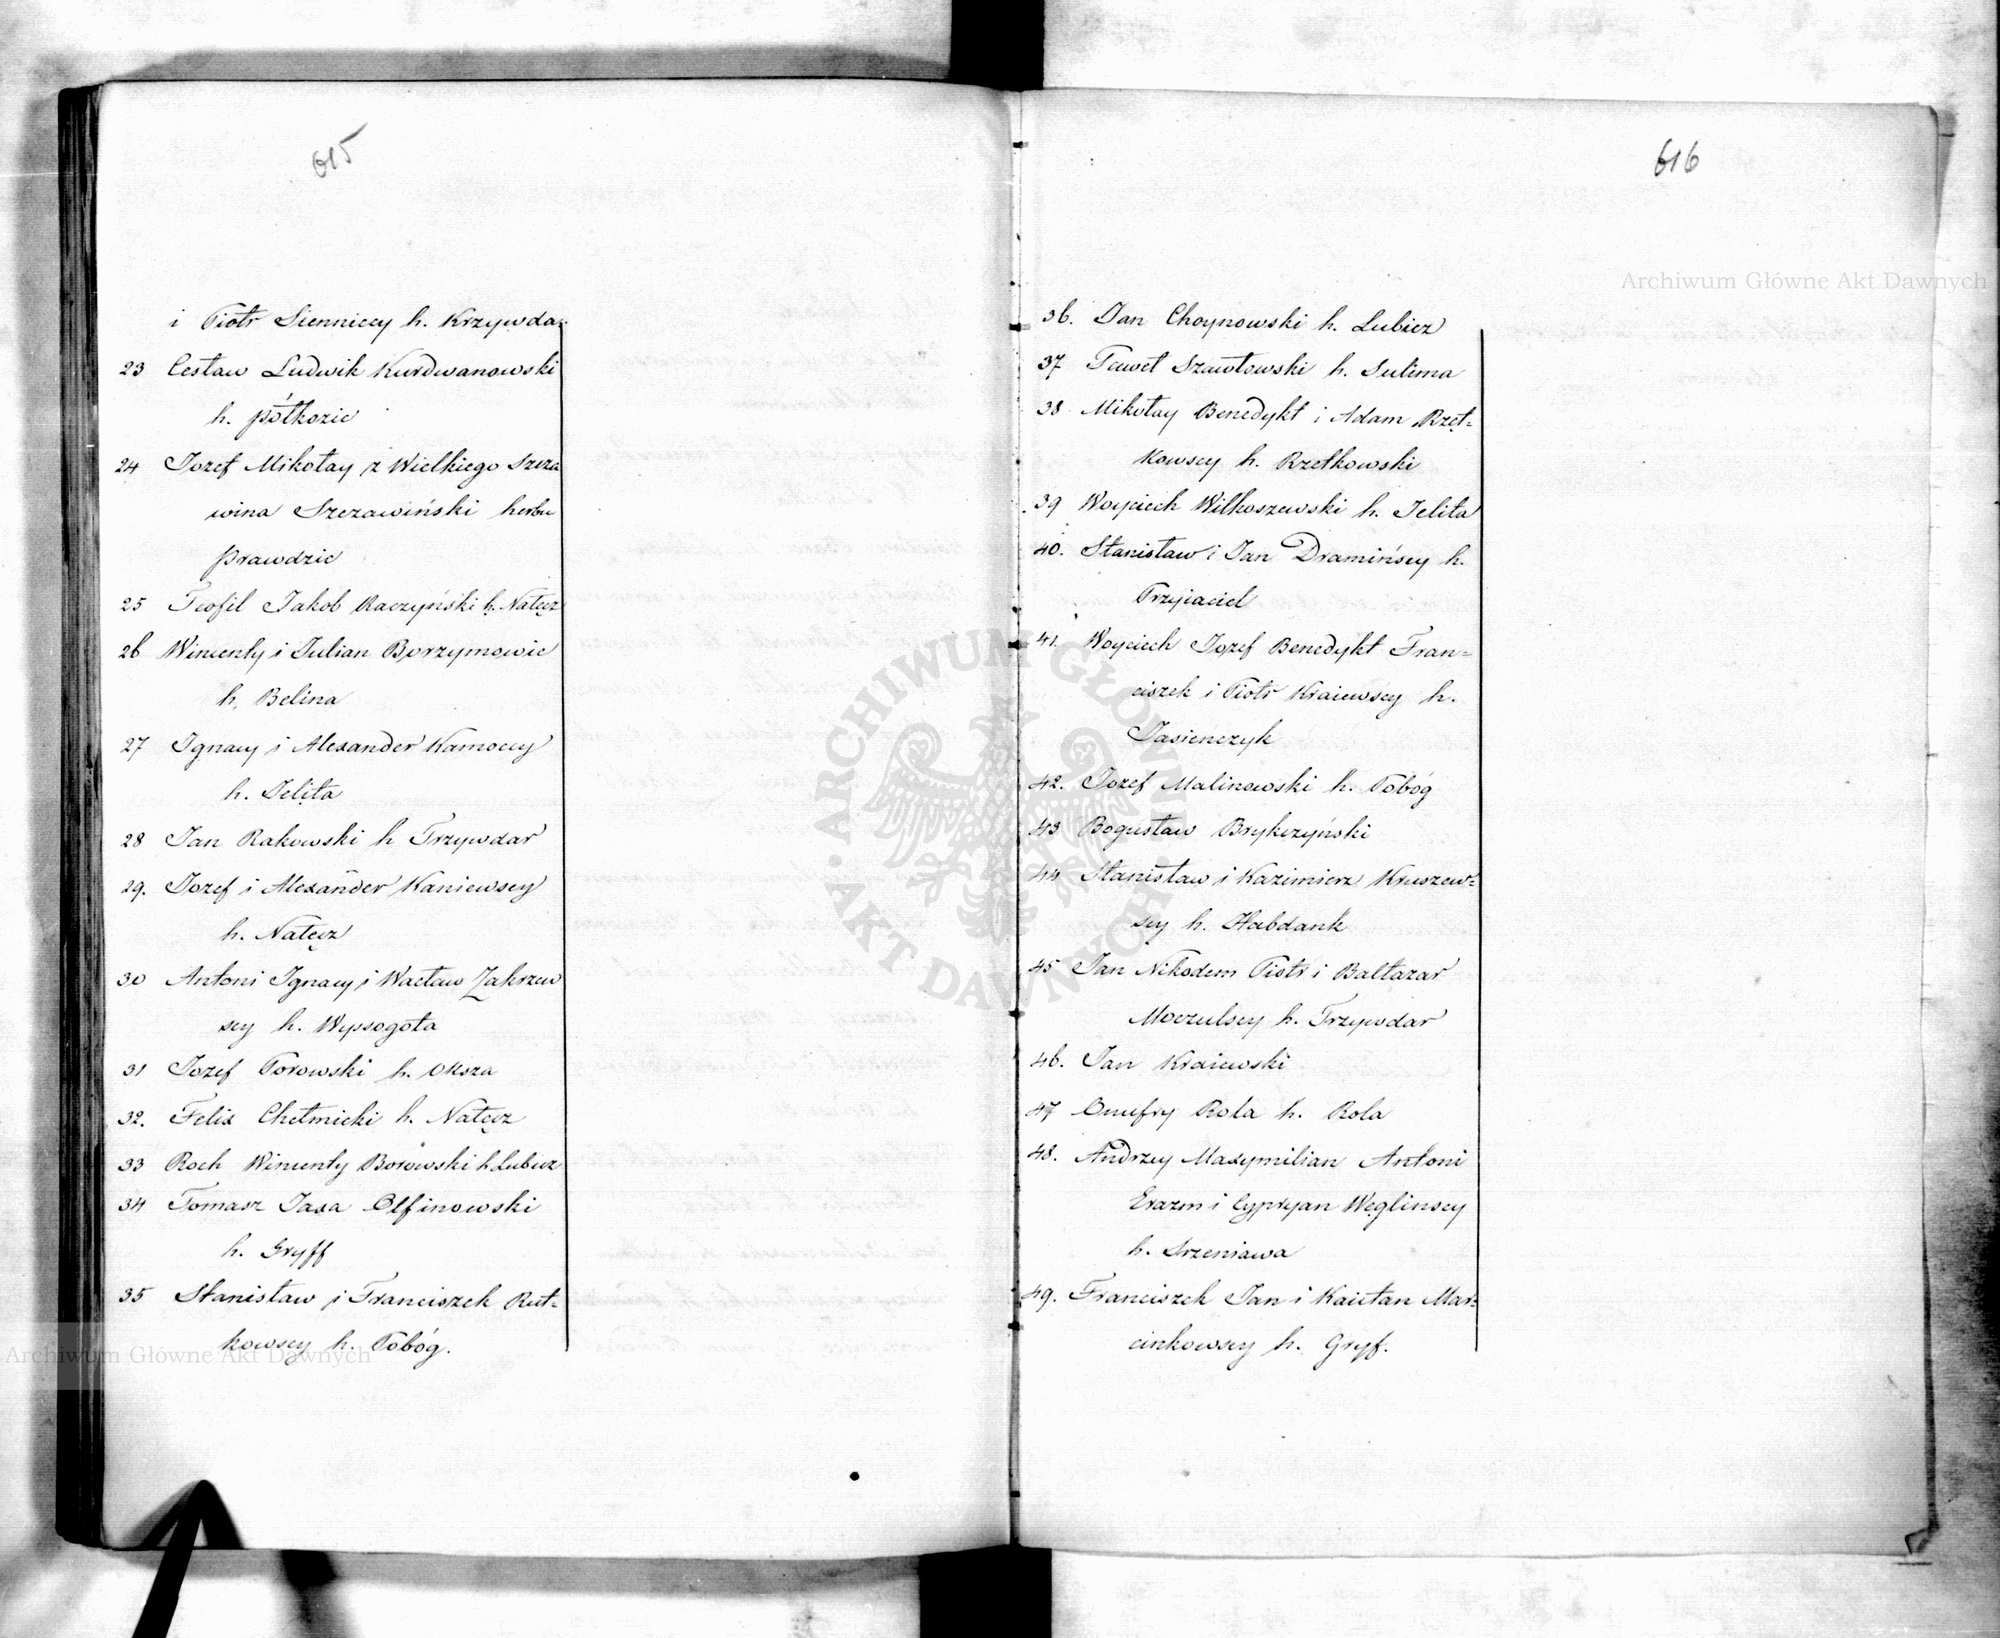 615
i Piotr Sienniccy h. Krzywda.
23 Cesław Ludwik Kurdwanowski
h. półkozic
24 Jozef Mikołay z Wielkiego Szcza
wina Szczawiński herbu
prawdzic
25 Teofil Jakob Raczyński h. Nałęcz
26 Wincenty i Julian Borzymowie
h. Belina
27 Ignacy i Alexander Kamoccy
h. Jelita
28 Jan Rakowski h Trzywdar
29. Jozef i Alexander Kaniewscy
h. Nałęcz
30 Antoni Ignacy i Wacław Zakrzew
scy h. Wyssogota
31 Jozef Porowski h. Oksza
32. Felix Chełmicki h. Nałęcz
33 Roch Wincenty Borowski h Lubicz
34 Tomasz Jaxa Olfinowski
h. Gryff
35 Stanisław i Franciszek Rut=
kowscy h. Pobóg.
616
36. Jan Choynowski h. Lubicz
37 Paweł Szawłowski h. Sulima
38 Mikołay Benedykt i Adam Rzęt=
kowscy h. Rzetkowski
39 Woyciech Wilkoszewski h. Jelita
40. Stanisław i Jan Dramińscy h.
Przyiaciel
41. Woyciech Jozef Benedykt Fran=
ciszek i Piotr Kraiewscy h.
Jasieńczyk
42. Jozef Malinowski h. Pobóg
43 Bogusław Brykczyński
44 Stanisław i Kazimierz Kruszew=
scy h. Habdank
45 Jan Nikodem Piotr i Baltazar
Moczulscy h. Trzywdar
46. Jan Kraiewski
47 Onufry Rola h. Rola
48. Andrzey Maxymilian Antoni
Erazm i Cypryan Węglinscy
h. Szreniawa
49. Franciszek Jan i Kaietan Mar=
cinkowscy h. Gryf.
Archiwum Główne Akt Dawnych
ARCHIWUM GŁÓWNE
• AKT DAWNYCH •
Archiwum Główne Akt Dawnych